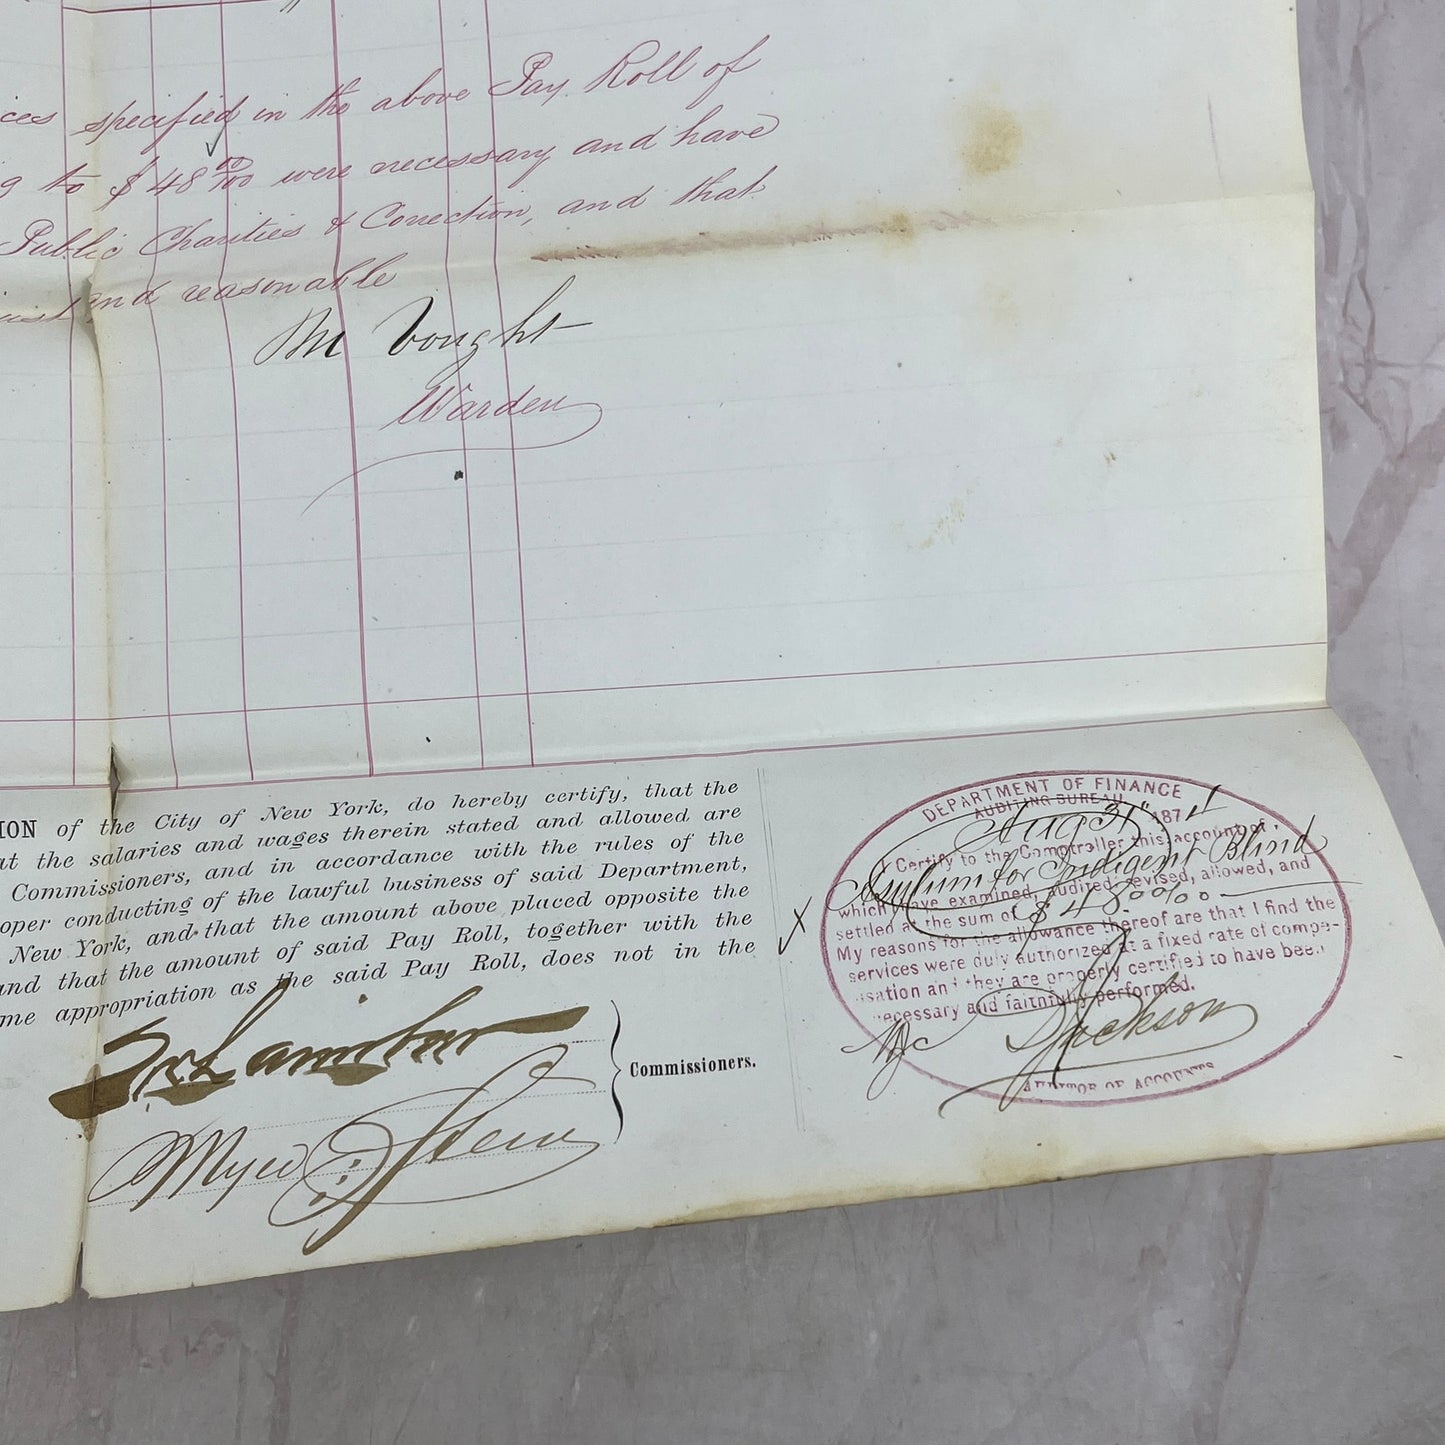 ces specified in the above Pay Roll of
g to $48 00/100 were necessary and have
Public Charities & Correction, and that
just and reasonable
M Vought
Warden
ION of the City of New York, do hereby certify, that the
at the salaries and wages therein stated and allowed are
Commissioners, and in accordance with the rules of the
oper conducting of the lawful business of said Department,
New York, and that the amount above placed opposite the
and that the amount of said Pay Roll, together with the
me appropriation as the said Pay Roll, does not in the
Myer Stern
Commissioners.
DEPARTMENT OF FINANCE
AUDITING BUREAU
Aug 31" 1874
I Certify to the Comptroller this account of
Asylum for Indigent Blind
which I have examined, audited, revised, allowed, and
settled at the sum of $48.00/00
My reasons for the allowance thereof are that I find the
services were duly authorized at a fixed rate of compe-
nsation and they are properly certified to have been
necessary and faithfully performed.
Jackson
AUDITOR OF ACCOUNTS